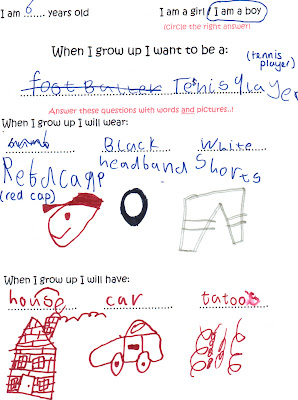 I am 6 years old I am a girl / I am a boy
(circle the right answer)
When I grow up I want to be a:
(tennis
player)
footballer Tenisplayer
Answer these questions with words and pictures..!
When I grow up I will wear:
Black White
Red cap headband Shorts
(red cap)
When I grow up I will have:
house car tatoos